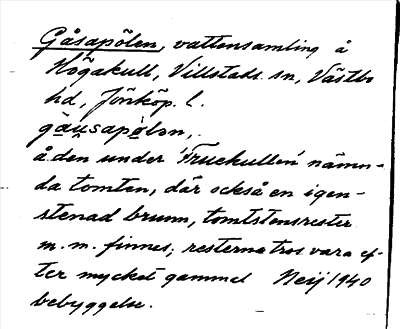 Gåsapölen, vattensamling å
Högakull, Villstads sn, Västbo
hd, Jönköp. l.
gåu̯sapølən,.
å den under 'Fruekullen' nämn-
da tomten, där också en igen-
stenad brunn, tomtstensrester
m. m. finnes; resterna tros vara ef-
ter mycket gammal Neij 1940
bebyggelse.